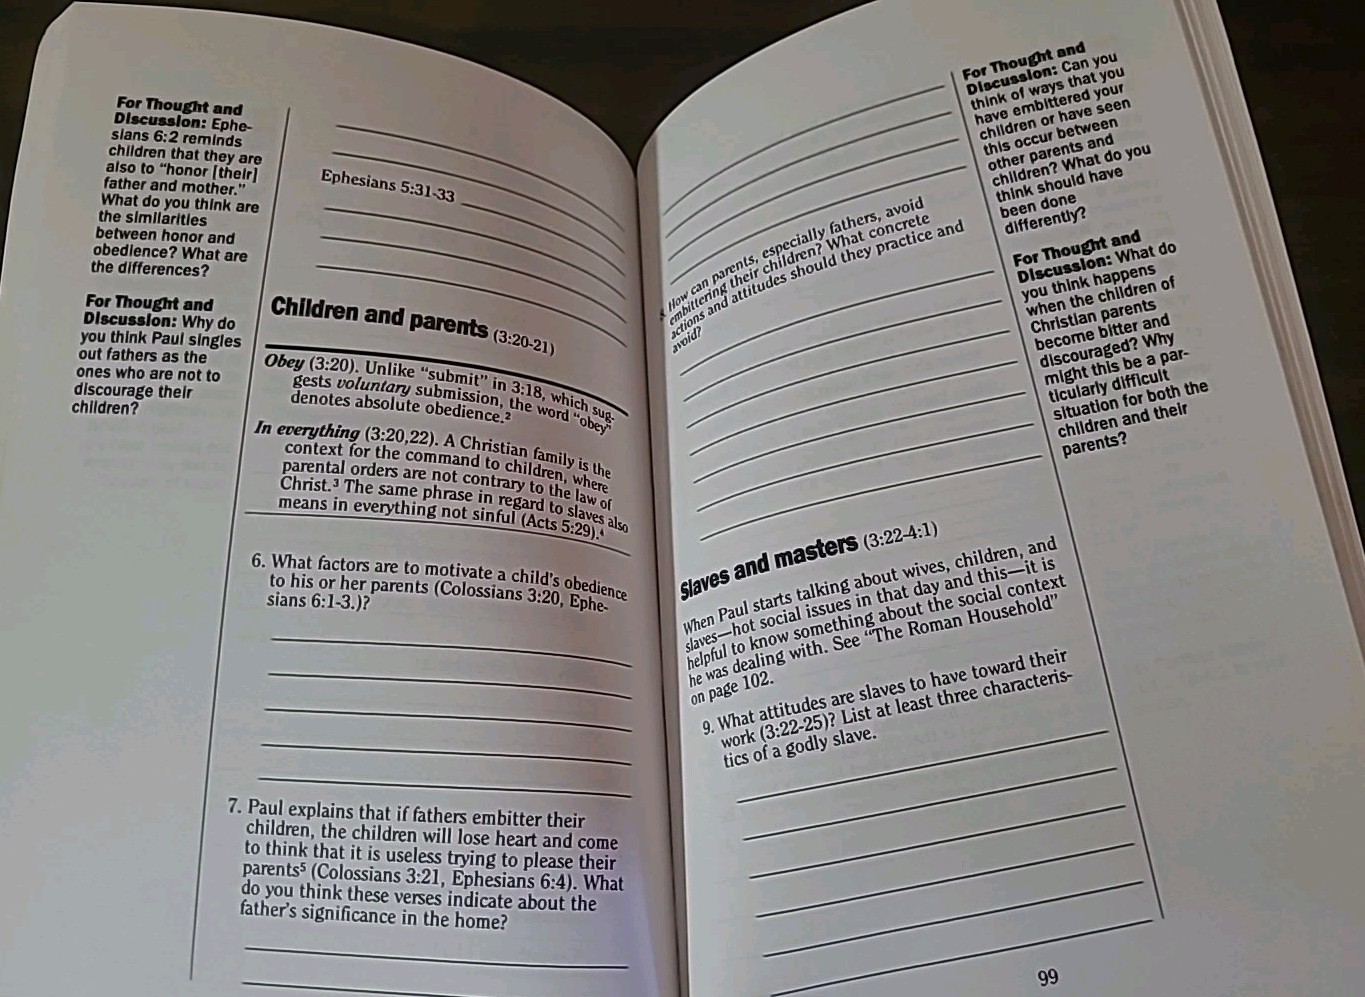 For Thought and
Discussion: Ephe-
sians 6:2 reminds
children that they are
also to "honor [their]
father and mother."
What do you think are
the similarities
between honor and
obedience? What are
the differences?
For Thought and
Discussion: Why do
you think Paul singles
out fathers as the
ones who are not to
discourage their
children?
Ephesians 5:31-33
Children and parents (3:20-21)
Obey (3:20). Unlike "submit" in 3:18, which sug-
gests voluntary submission, the word "obey"
denotes absolute obedience.²
In everything (3:20,22). A Christian family is the
context for the command to children, where
parental orders are not contrary to the law of
Christ.³ The same phrase in regard to slaves also
means in everything not sinful (Acts 5:29).⁴
6. What factors are to motivate a child's obedience
to his or her parents (Colossians 3:20, Ephe-
sians 6:1-3.)?
7. Paul explains that if fathers embitter their
children, the children will lose heart and come
to think that it is useless trying to please their
parents⁵ (Colossians 3:21, Ephesians 6:4). What
do you think these verses indicate about the
father's significance in the home?
8. How can parents, especially fathers, avoid
embittering their children? What concrete
actions and attitudes should they practice and
avoid?
Slaves and masters (3:22-4:1)
When Paul starts talking about wives, children, and
slaves—hot social issues in that day and this—it is
helpful to know something about the social context
he was dealing with. See "The Roman Household"
on page 102.
9. What attitudes are slaves to have toward their
work (3:22-25)? List at least three characteris-
tics of a godly slave.
For Thought and
Discussion: Can you
think of ways that you
have embittered your
children or have seen
this occur between
other parents and
children? What do you
think should have
been done
differently?
For Thought and
Discussion: What do
you think happens
when the children of
Christian parents
become bitter and
discouraged? Why
might this be a par-
ticularly difficult
situation for both the
children and their
parents?
99